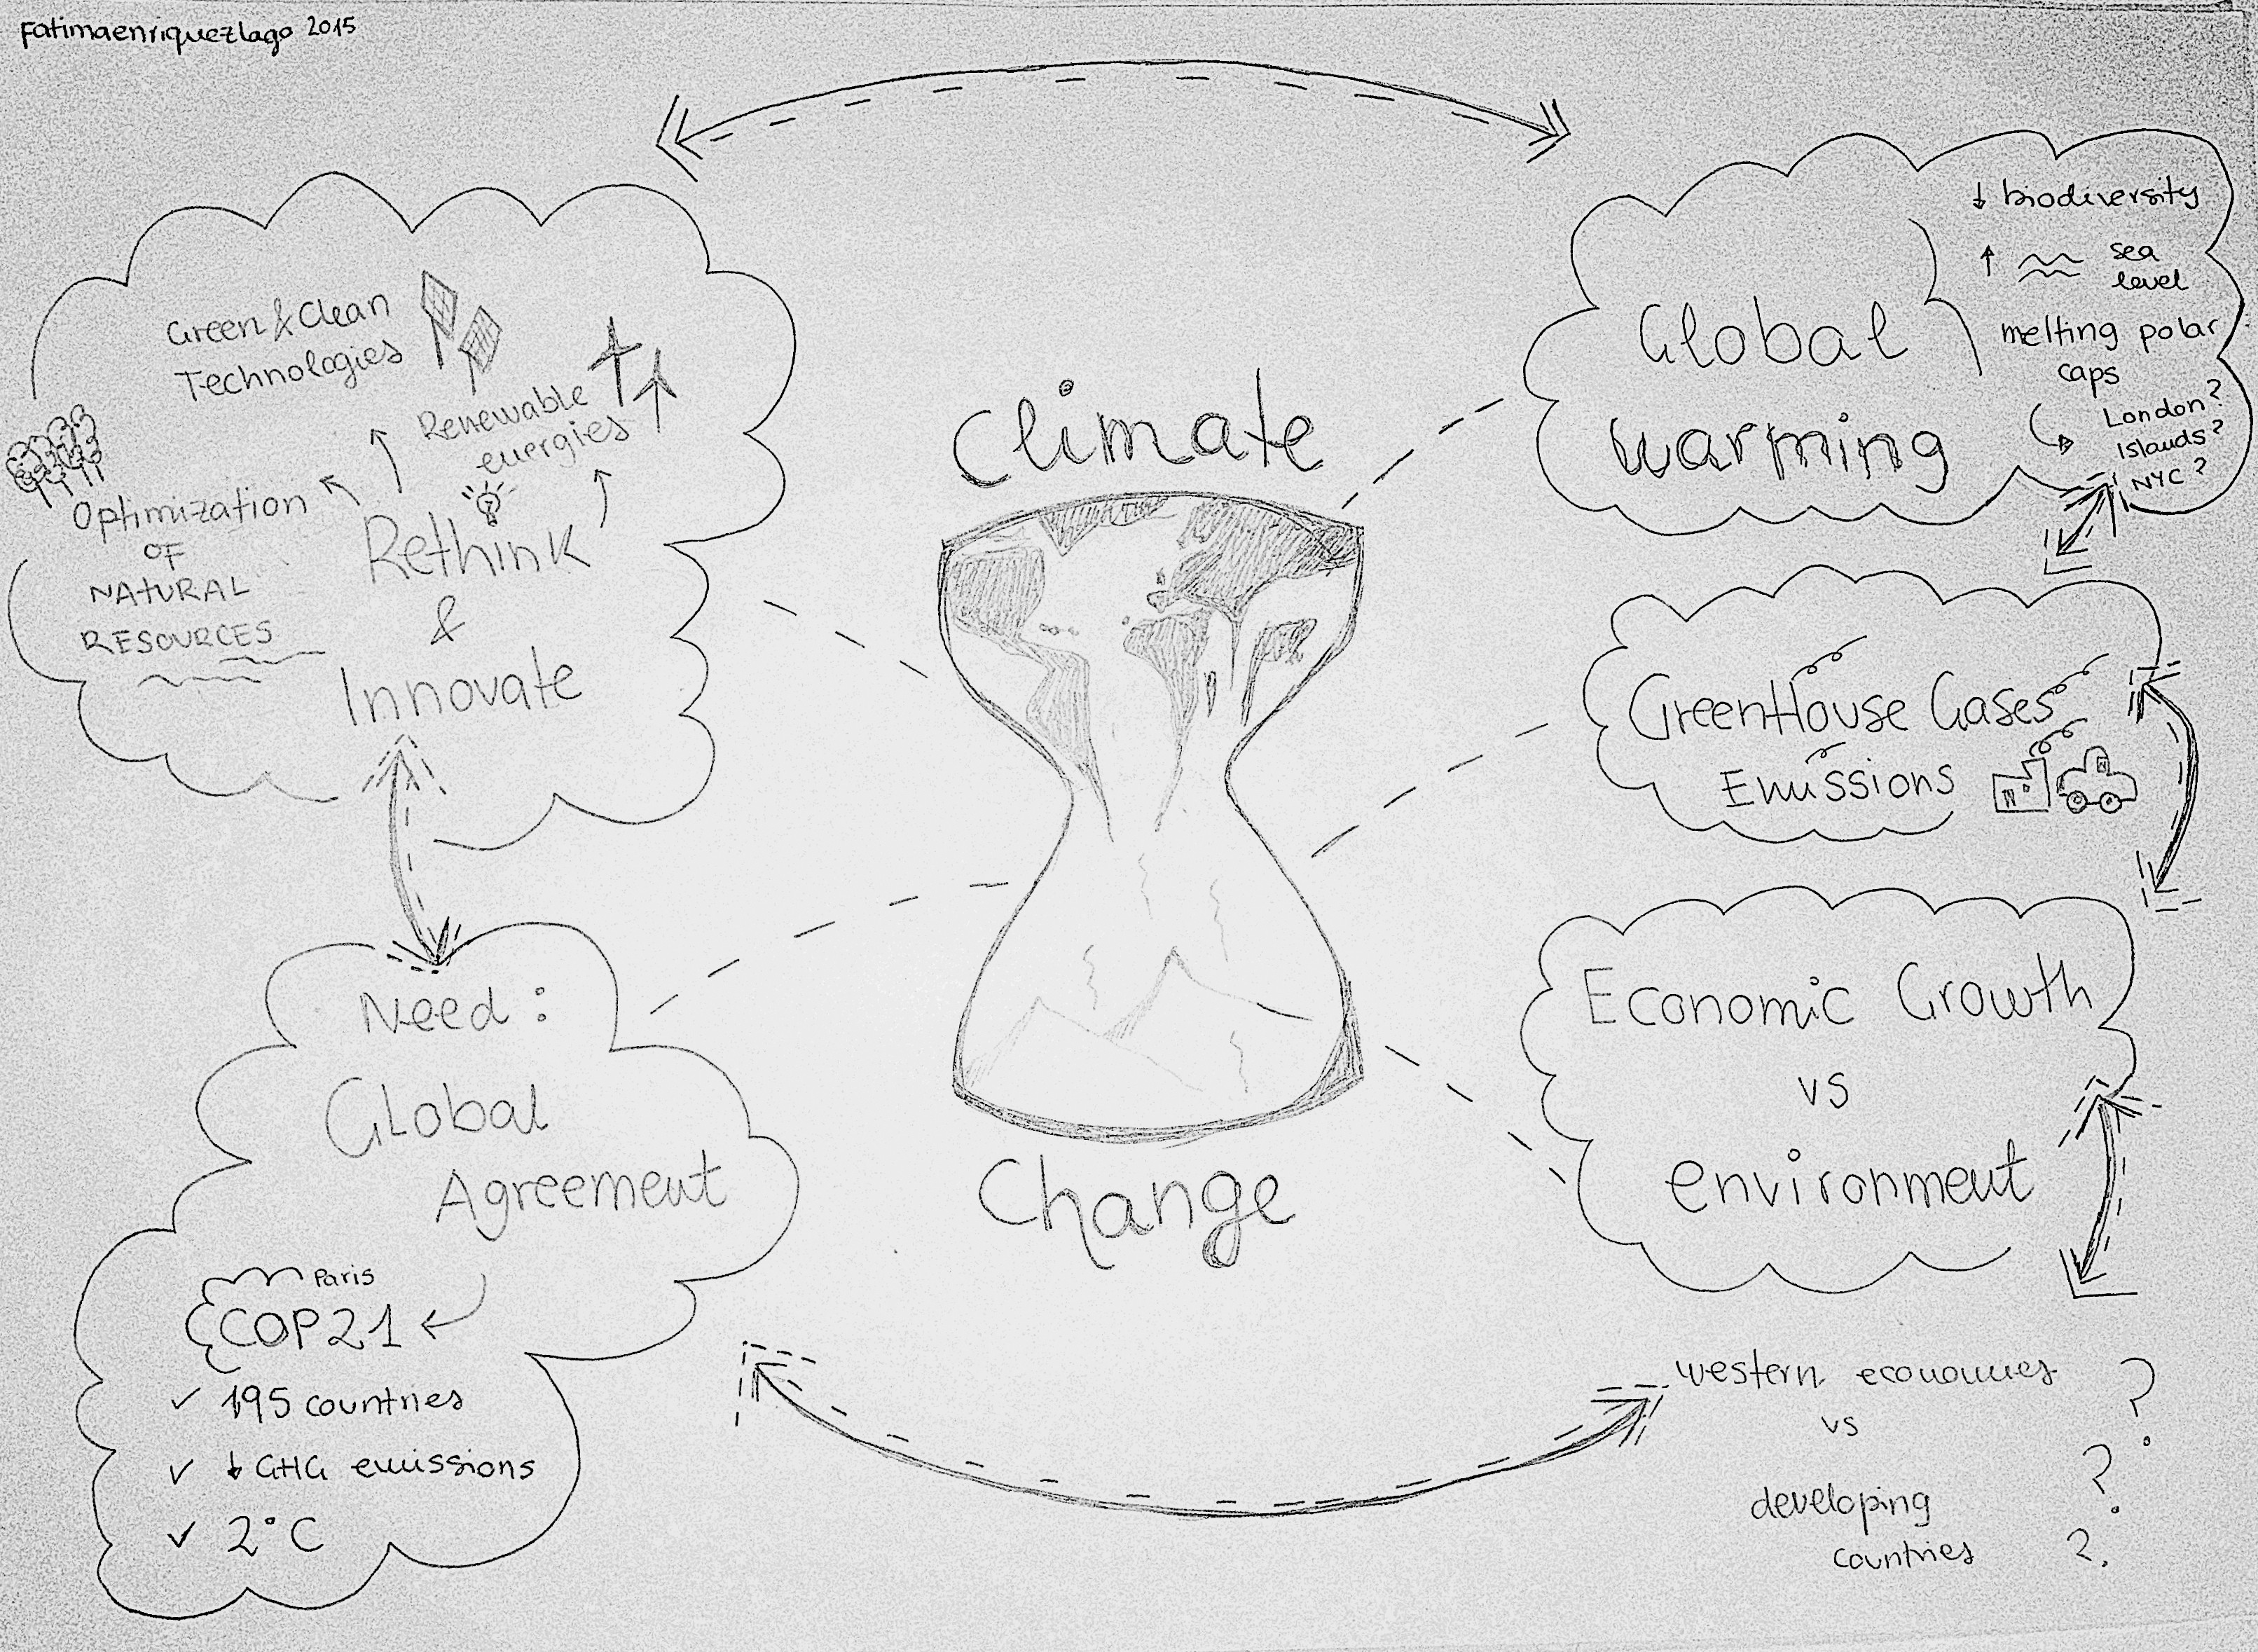 fatimaenriquezlago 2015
Climate
Change
Green & Clean
Technologies
Renewable
energies
Optimization
OF
NATURAL
RESOURCES
Rethink
&
Innovate
Need:
Global
Agreement
Paris
COP21
✓ 195 countries
✓ ↓ GHG emissions
✓ 2°C
Global
warming
↓ biodiversity
↑ sea
level
melting polar
caps
London?
Islands?
NYC?
GreenHouse Gases
Emissions
Economic Growth
vs
environment
western economies ?
vs
?
developing
countries ?